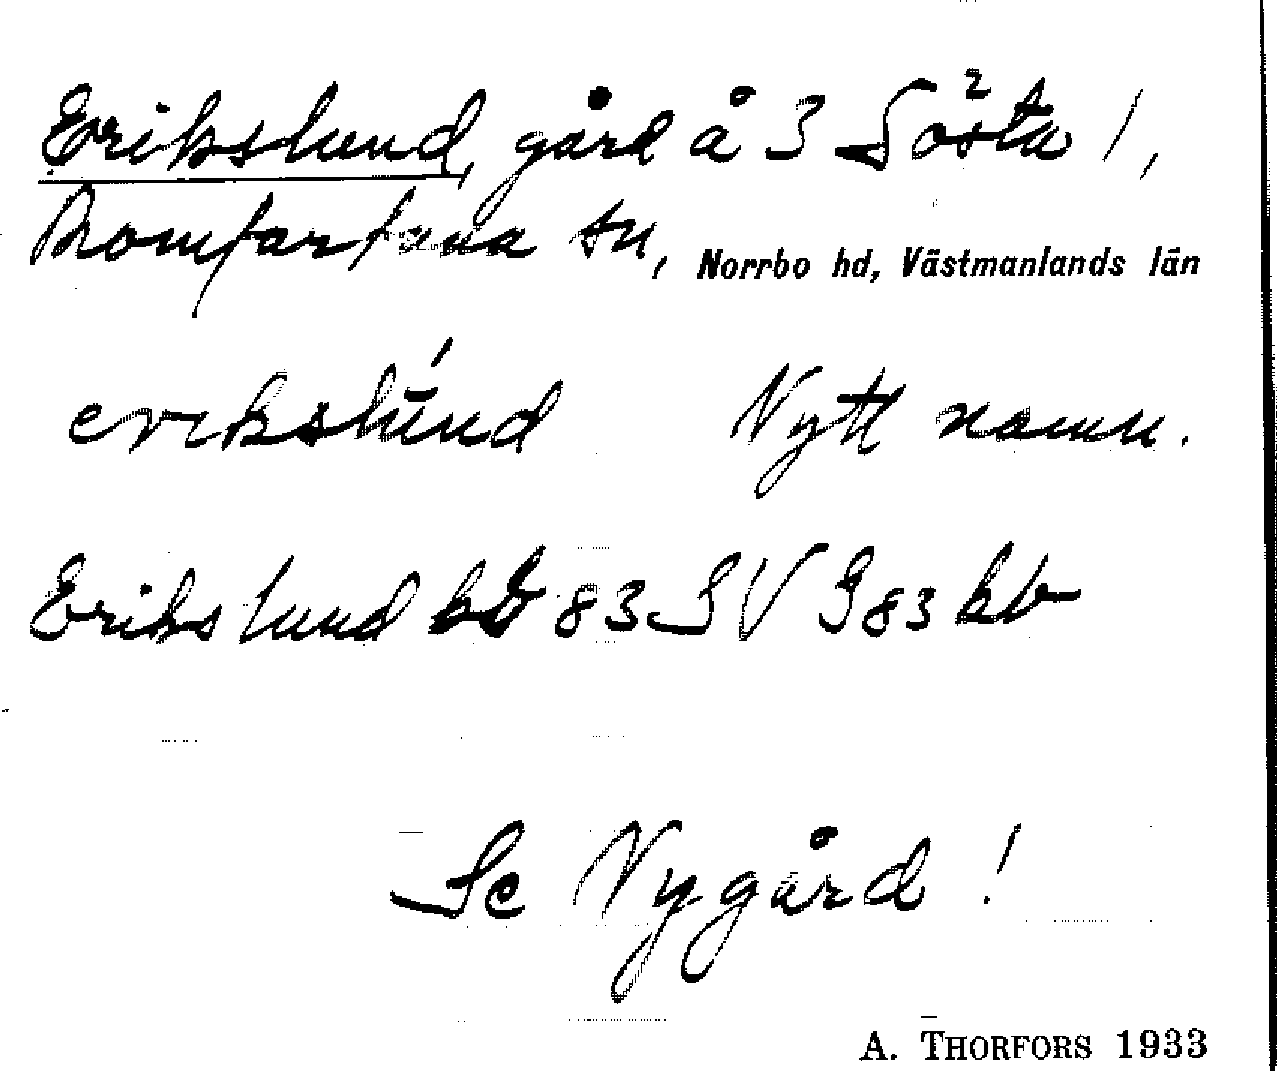 Erikslund, gård å 3 Sösta 1,
Romfartuna sn, Norrbo hd, Västmanlands län
erikslúnd Nytt namn.
Erikslund kb 83 SV G83 kb
Se Nygård!
A. THORFORS 1933